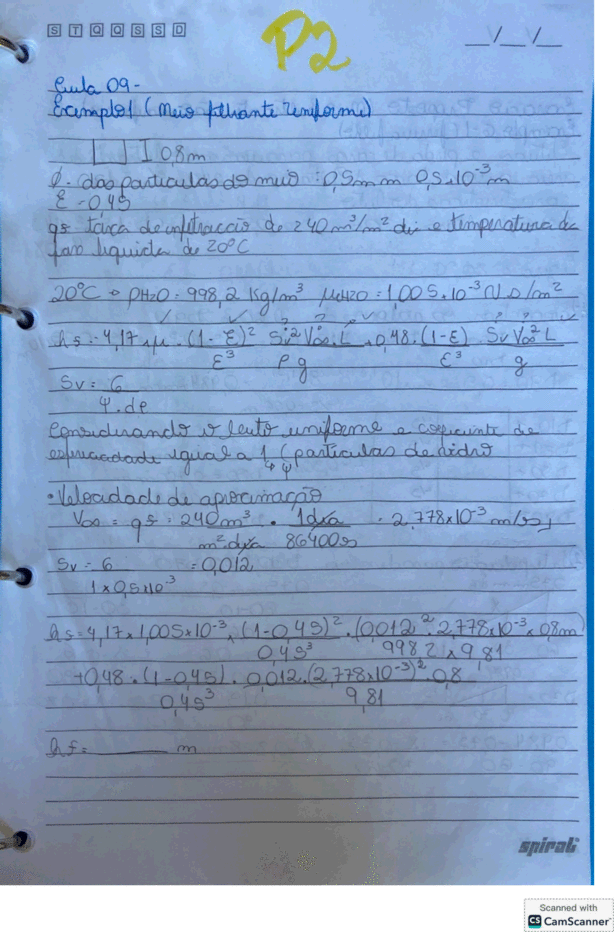 S T Q Q S S D
P2
__/__/__
Aula 09-
Exemplo 1 (Meio filtrante Uniforme)
I 0,8m
Ø. das partículas do meio : 0,5mm 0,5.10⁻³m
ε = 0,45
qs taxa de infiltração de 240 m³/m² di e temperatura da
fase liquida de 20°C
20°C → ρH2O = 998,2 Kg/m³ μH2O = 1,005.10⁻³ N.s/m²
hs = 4,17 μ . (1-ε)² Sv² V∞ . L + 0,48 . (1-ε) Sv V∞² L
ε³ ρ g ε³ g
Sv = 6
Ψ . dp
Considerando o leito uniforme e coeficiente de
esfericidade igual a 1 (partículas de vidro
↳ Ψ
• Velocidade de aproximação
V∞ = qs = 240 m³ . 1 dia = 2,778x10⁻³ m/s,
m².dia 86400s
Sv = 6 = 0,012
1 x 0,5x10⁻³
hs = 4,17 x 1,005 x 10⁻³ x (1-0,45)² . (0,012² . 2,778x10⁻³ x 0,8m)
0,45³ 998 2 x 9,81
+0,48 . (1-0,45) . 0,012.(2,778x10⁻³)² . 0,8
0,45³ 9,81
hf = ______ m
spiral
Scanned with
CS CamScanner